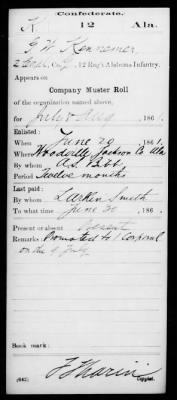 Confederate.
K 12 Ala.
G W Kennemer
2 Corpl, Co. , 12 Reg't Alabama Infantry.
Appears on
Company Muster Roll
of the organization named above,
for July & Aug, 1861.
Enlisted:
When June 20, 1861.
Where Woodville Jackson Co Ala
By whom
Period Twelve months
Last paid:
By whom Larkin Smith
To what time June 30, 186 .
Present or absent Present
Remarks: Promoted to 1 Corporal
on the 9 July
Book mark:
(642) Copyist.